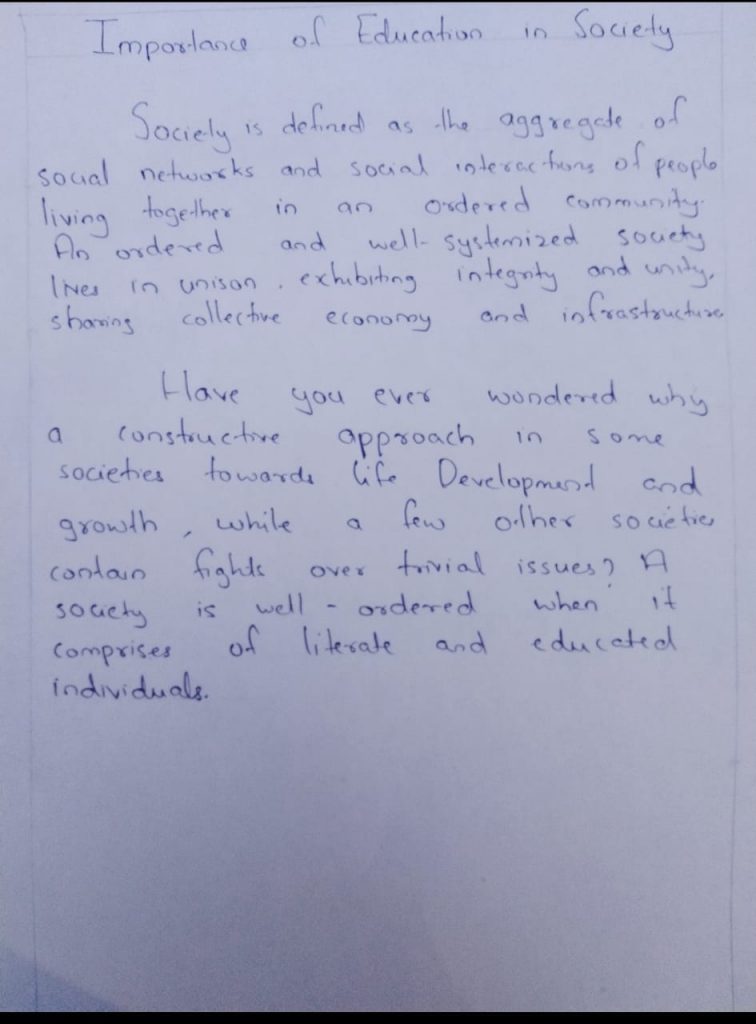 Importance of Education in Society
Society is defined as the aggregate of
social networks and social interactions of people
living together in an ordered community.
An ordered and well-systemized society
lives in unison, exhibiting integrity and unity,
sharing collective economy and infrastructure
Have you ever wondered why
a constructive approach in some
societies towards life Development and
growth, while a few other societies
contain fights over trivial issues? A
society is well-ordered when it
comprises of literate and educated
individuals.